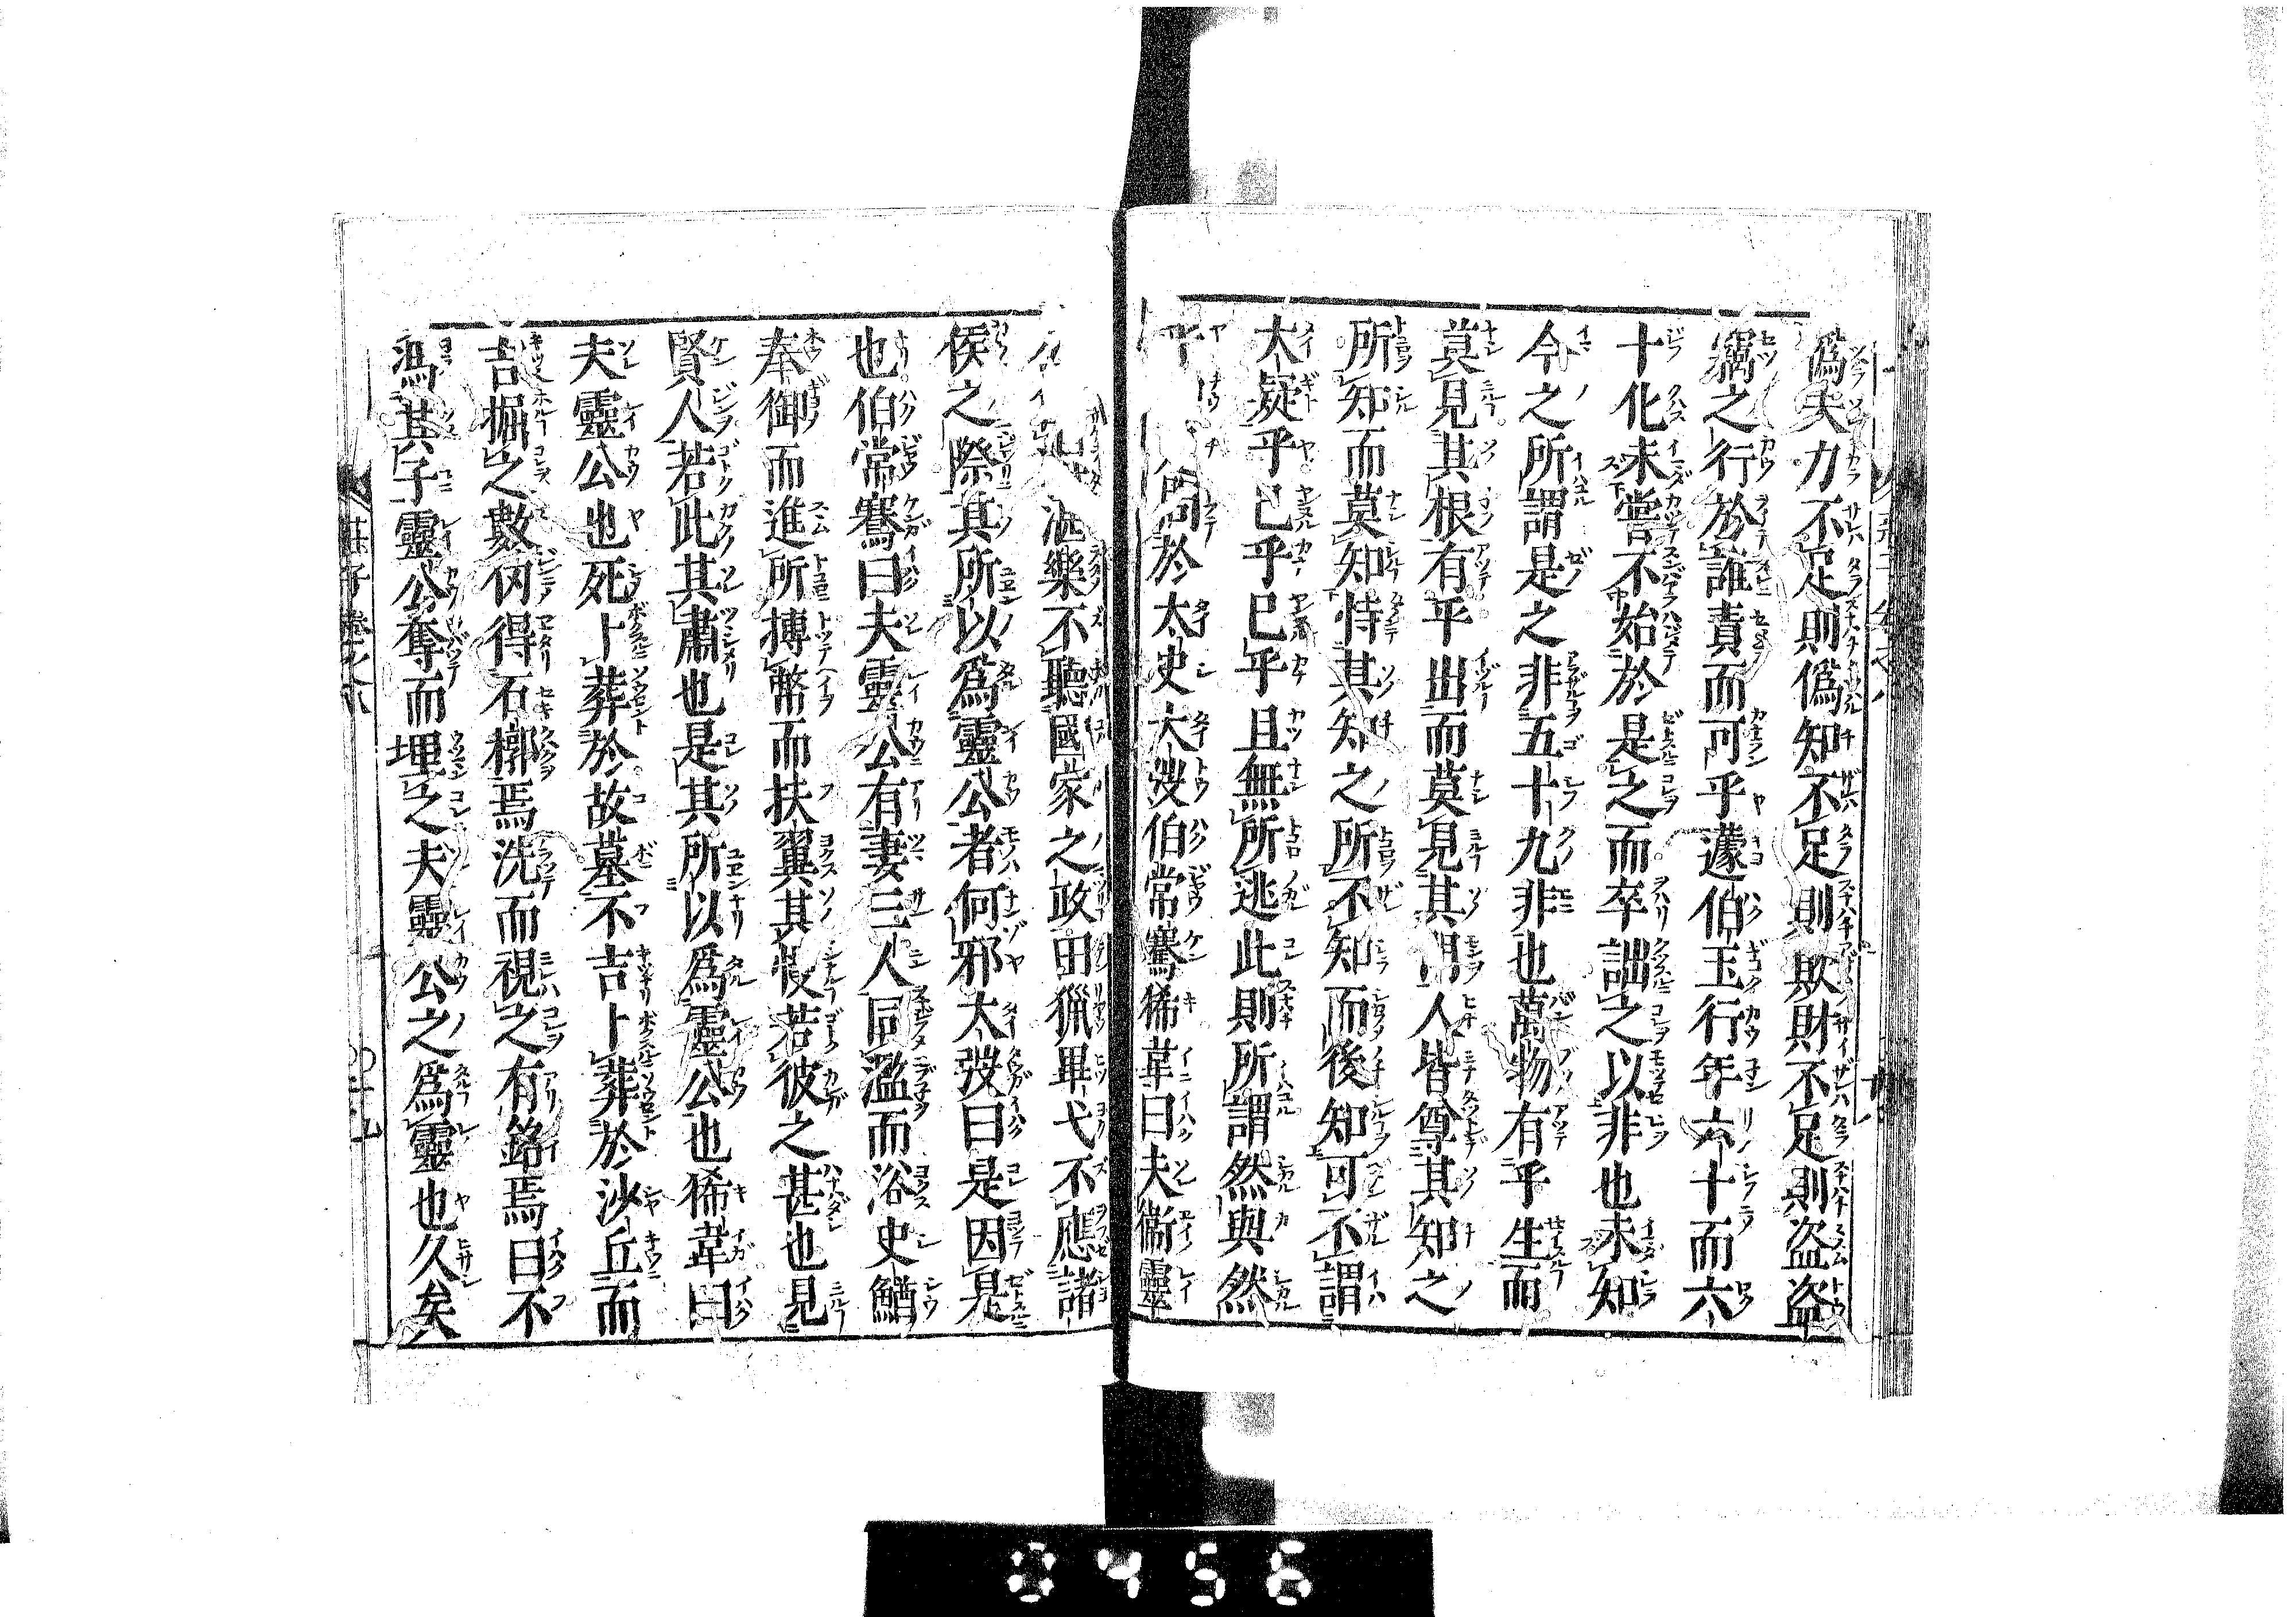 爲夫力不足則僞知不足則欺財不足則盗盗
竊之行於誰責而可乎蘧伯玉行年六十而六
十化未嘗不始於是之而卒詘之以非也未知
今之所謂是之非五十九非也萬物有乎生而
莫見其根有乎出而莫見其門人皆尊其知之
所知而莫知恃其知之所不知而後知可不謂
大疑乎已乎已乎且無所逃此則所謂然與然
乎 問於太史大弢伯常騫狶韋曰夫衞靈
湎樂不聽國家之政田獵畢弋不應諸
侯之際其所以爲靈公者何邪太弢曰是因是
也伯常騫曰夫靈公有妻三人同濫而浴史鰌
奉御而進所搏幣而扶翼其慢若彼之甚也見
賢人若此其肅也是其所以爲靈公也狶韋曰
夫靈公也死卜葬於故墓不吉卜葬於沙丘而
吉掘之數仞得石槨焉洗而視之有銘焉曰不
馮其子靈公奪而埋之夫靈公之爲靈也久矣
莊子卷之八
0456